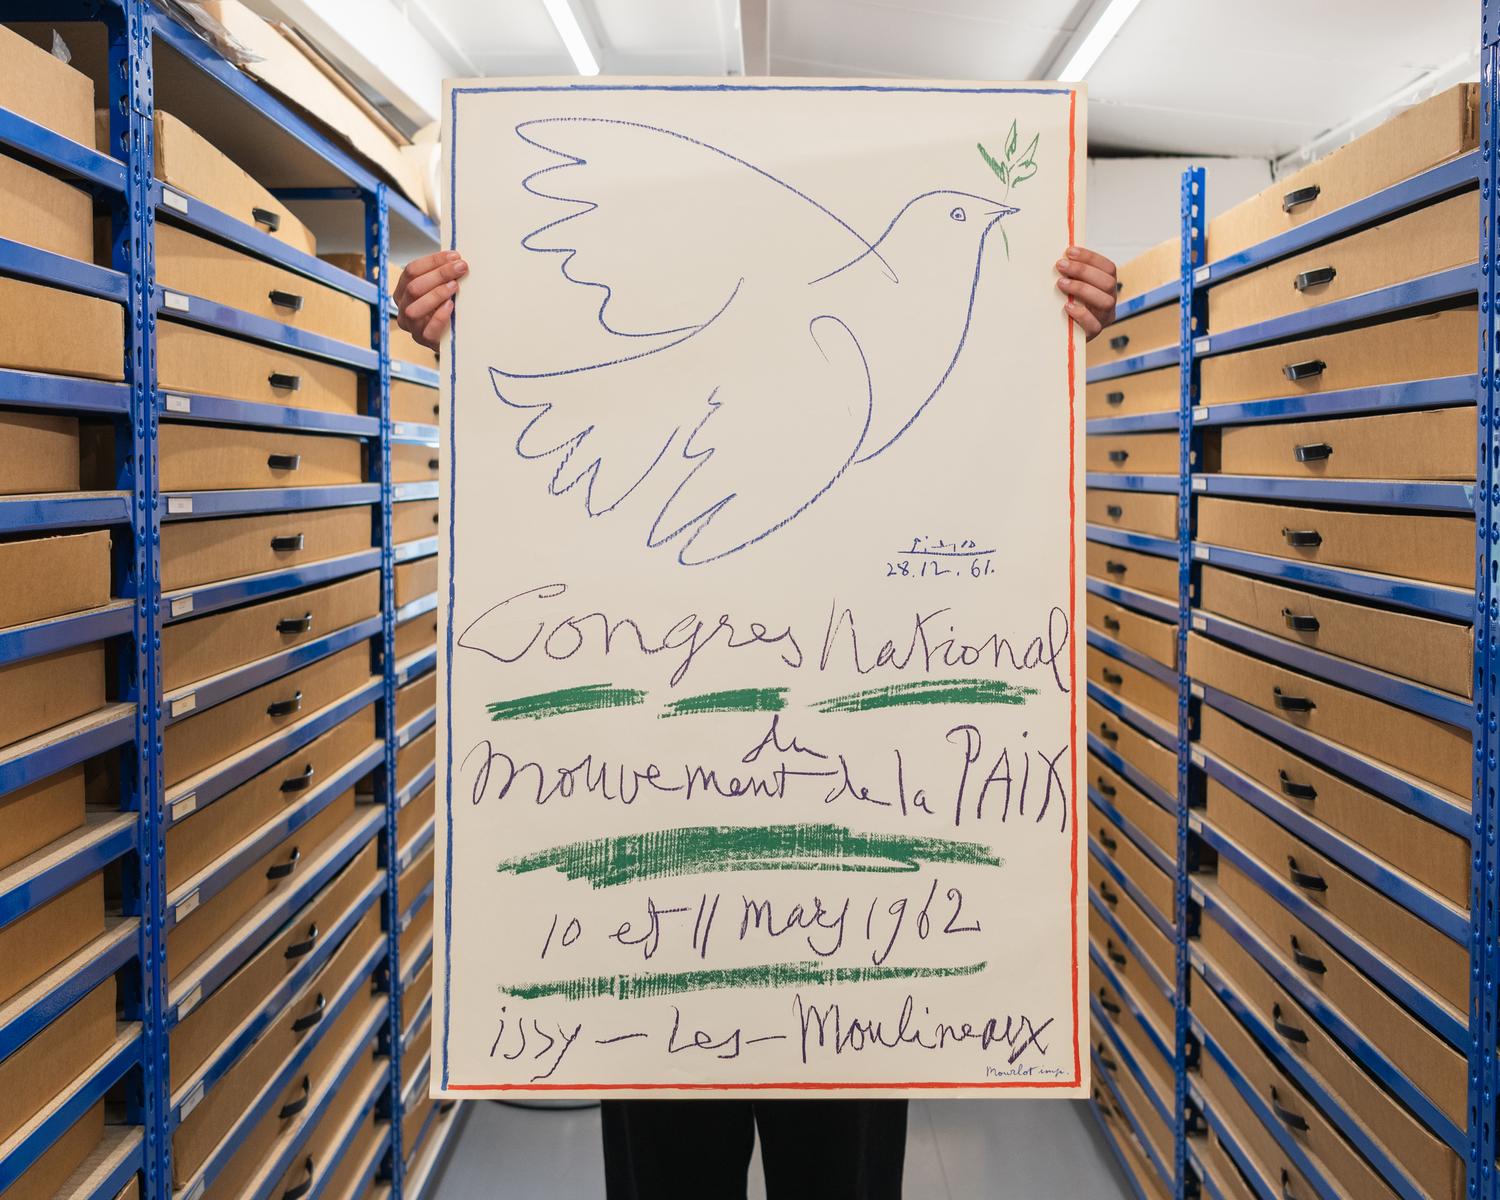 Picasso
28.12.61.
Congres National
du
Mouvement de la PAIX
10 et 11 mars 1962
issy - Les - Moulineaux
Mourlot imp.